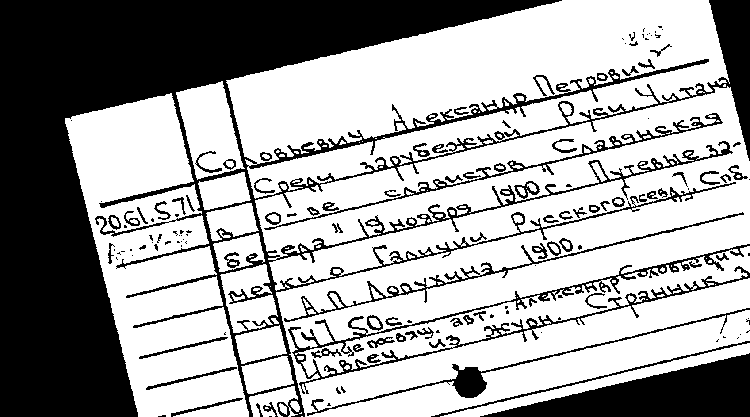 Соловьевич, Александр Петрович
Среди зарубежной Руси. Читана
20.61.5.71.
в о-ве славистов „Славянская
беседа" 19 ноября 1900 г. Путевые за-
метки о Галиции Русского [псевд.]. Спб
тип. А.П. Лопухина, 1900.
[4] 50с.
В конце посвящ. авт.: Александр Соловьевич.
Извлеч. из журн. „Странник" з
1900 г."